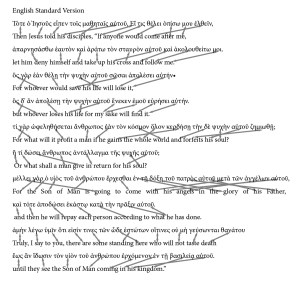 English Standard Version
Τότε ὁ Ἰησοῦς εἶπεν τοῖς μαθηταῖς αὐτοῦ, Εἴ τις θέλει ὀπίσω μου ἐλθεῖν,
Then Jesus told his disciples, "If anyone would come after me,
ἀπαρνησάσθω ἑαυτὸν καὶ ἀράτω τὸν σταυρὸν αὐτοῦ καὶ ἀκολουθείτω μοι.
let him deny himself and take up his cross and follow me.
ὃς γὰρ ἐὰν θέλῃ τὴν ψυχὴν αὐτοῦ σῶσαι ἀπολέσει αὐτήν·
For whoever would save his life will lose it,
ὃς δ' ἂν ἀπολέσῃ τὴν ψυχὴν αὐτοῦ ἕνεκεν ἐμοῦ εὑρήσει αὐτήν.
but whoever loses his life for my sake will find it.
τί γὰρ ὠφεληθήσεται ἄνθρωπος ἐὰν τὸν κόσμον ὅλον κερδήσῃ τὴν δὲ ψυχὴν αὐτοῦ ζημιωθῇ;
For what will it profit a man if he gains the whole world and forfeits his soul?
ἢ τί δώσει ἄνθρωπος ἀντάλλαγμα τῆς ψυχῆς αὐτοῦ;
Or what shall a man give in return for his soul?
μέλλει γὰρ ὁ υἱὸς τοῦ ἀνθρώπου ἔρχεσθαι ἐν τῇ δόξῃ τοῦ πατρὸς αὐτοῦ μετὰ τῶν ἀγγέλων αὐτοῦ,
For the Son of Man is going to come with his angels in the glory of his Father,
καὶ τότε ἀποδώσει ἑκάστῳ κατὰ τὴν πρᾶξιν αὐτοῦ.
and then he will repay each person according to what he has done.
ἀμὴν λέγω ὑμῖν ὅτι εἰσίν τινες τῶν ὧδε ἑστώτων οἵτινες οὐ μὴ γεύσωνται θανάτου
Truly, I say to you, there are some standing here who will not taste death
ἕως ἂν ἴδωσιν τὸν υἱὸν τοῦ ἀνθρώπου ἐρχόμενον ἐν τῇ βασιλείᾳ αὐτοῦ.
until they see the Son of Man coming in his kingdom."